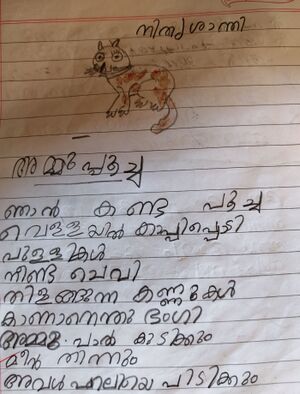 നിത്യശാന്തി
അമ്മുപ്പൂച്ച
ഞാൻ കണ്ട പൂച്ച
വെള്ളയിൽ കാപ്പിപ്പൊടി
പുള്ളികൾ
നീണ്ട ചെവി
തിളങ്ങുന്ന കണ്ണുകൾ
കാണാനെന്തു ഭംഗി
അമ്മു പാൽ കുടിക്കും
മീൻ തിന്നും
അവൾ എലിയെ പിടിക്കും